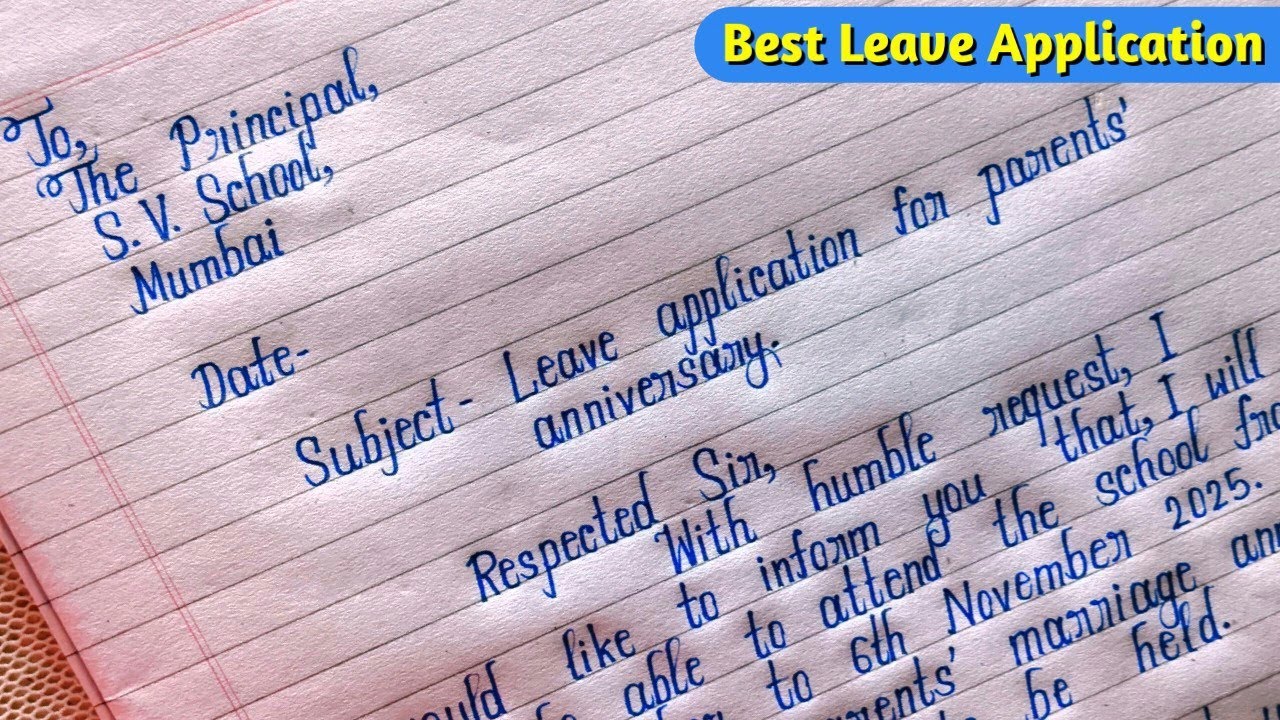 Best Leave Application
To,
The Principal,
S.V. School,
Mumbai
Date-
Subject- Leave application for parents'
anniversary.
Respected Sir,
With humble request, I
like to inform you that, I will
able to attend the school
to 6th November 2025.
marriage
be held.